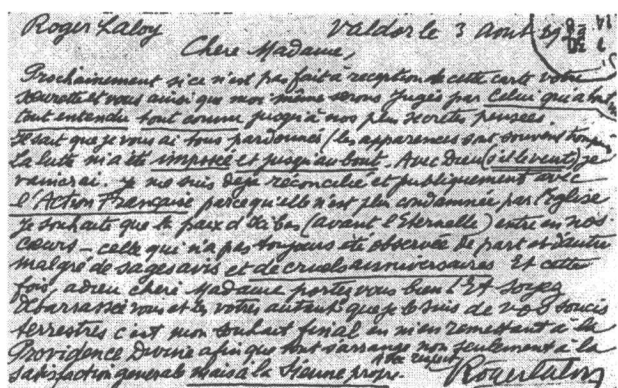 Roger Laloy Valdor le 3 Aout 39
Chere Madame,
Prochainement si ce n'est pas fait a reception de cette carte votre
sœurette et vous ainsi que moi même serons jugés par Celui qui a tout
tout entendu tout connu jusqu'a nos plus secretes pensees.
Il sait que je vous ai tous pardonnés (les apparences sont souvent
La lutte m'a été imposée et jusqu'au bout. Avec Dieu (s'il le veut) je
vaincrai. je me suis deja réconcilié et publiquement avec
l'Action Française parce qu'elle n'est plus condamnée par l'Eglise
Je souhaite que la paix d'ici bas (avant l'Eternelle) entre en nos
cœurs - celle qui n'a pas toujours été observée de part et d'autre
malgré de sages avis et de cruels anniversaires Et cette
fois adieu chere Madame portez vous bien ! Et soyez
débarrassée vous et les votres autant que je le suis de vos soucis
terrestres c'est mon souhait final en m'en remettant a la
Providence Divine afin que tout s'arrange non seulement a la
satisfaction generale mais a la Sienne propre. Roger Laloy